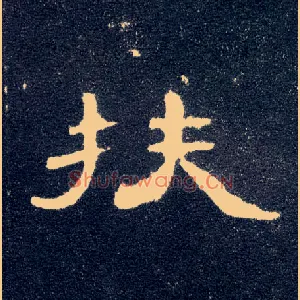 扶
ShufaWang.CN